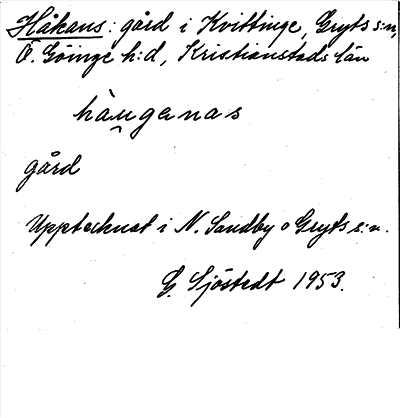 Håkans: gård i Kvittinge, Gryts s:n,
Ö. Göinge h:d, Kristianstads län
hàu̯ganas
gård
Upptecknat i N. Sandby o Gryts s:n.
G. Sjöstedt 1953.